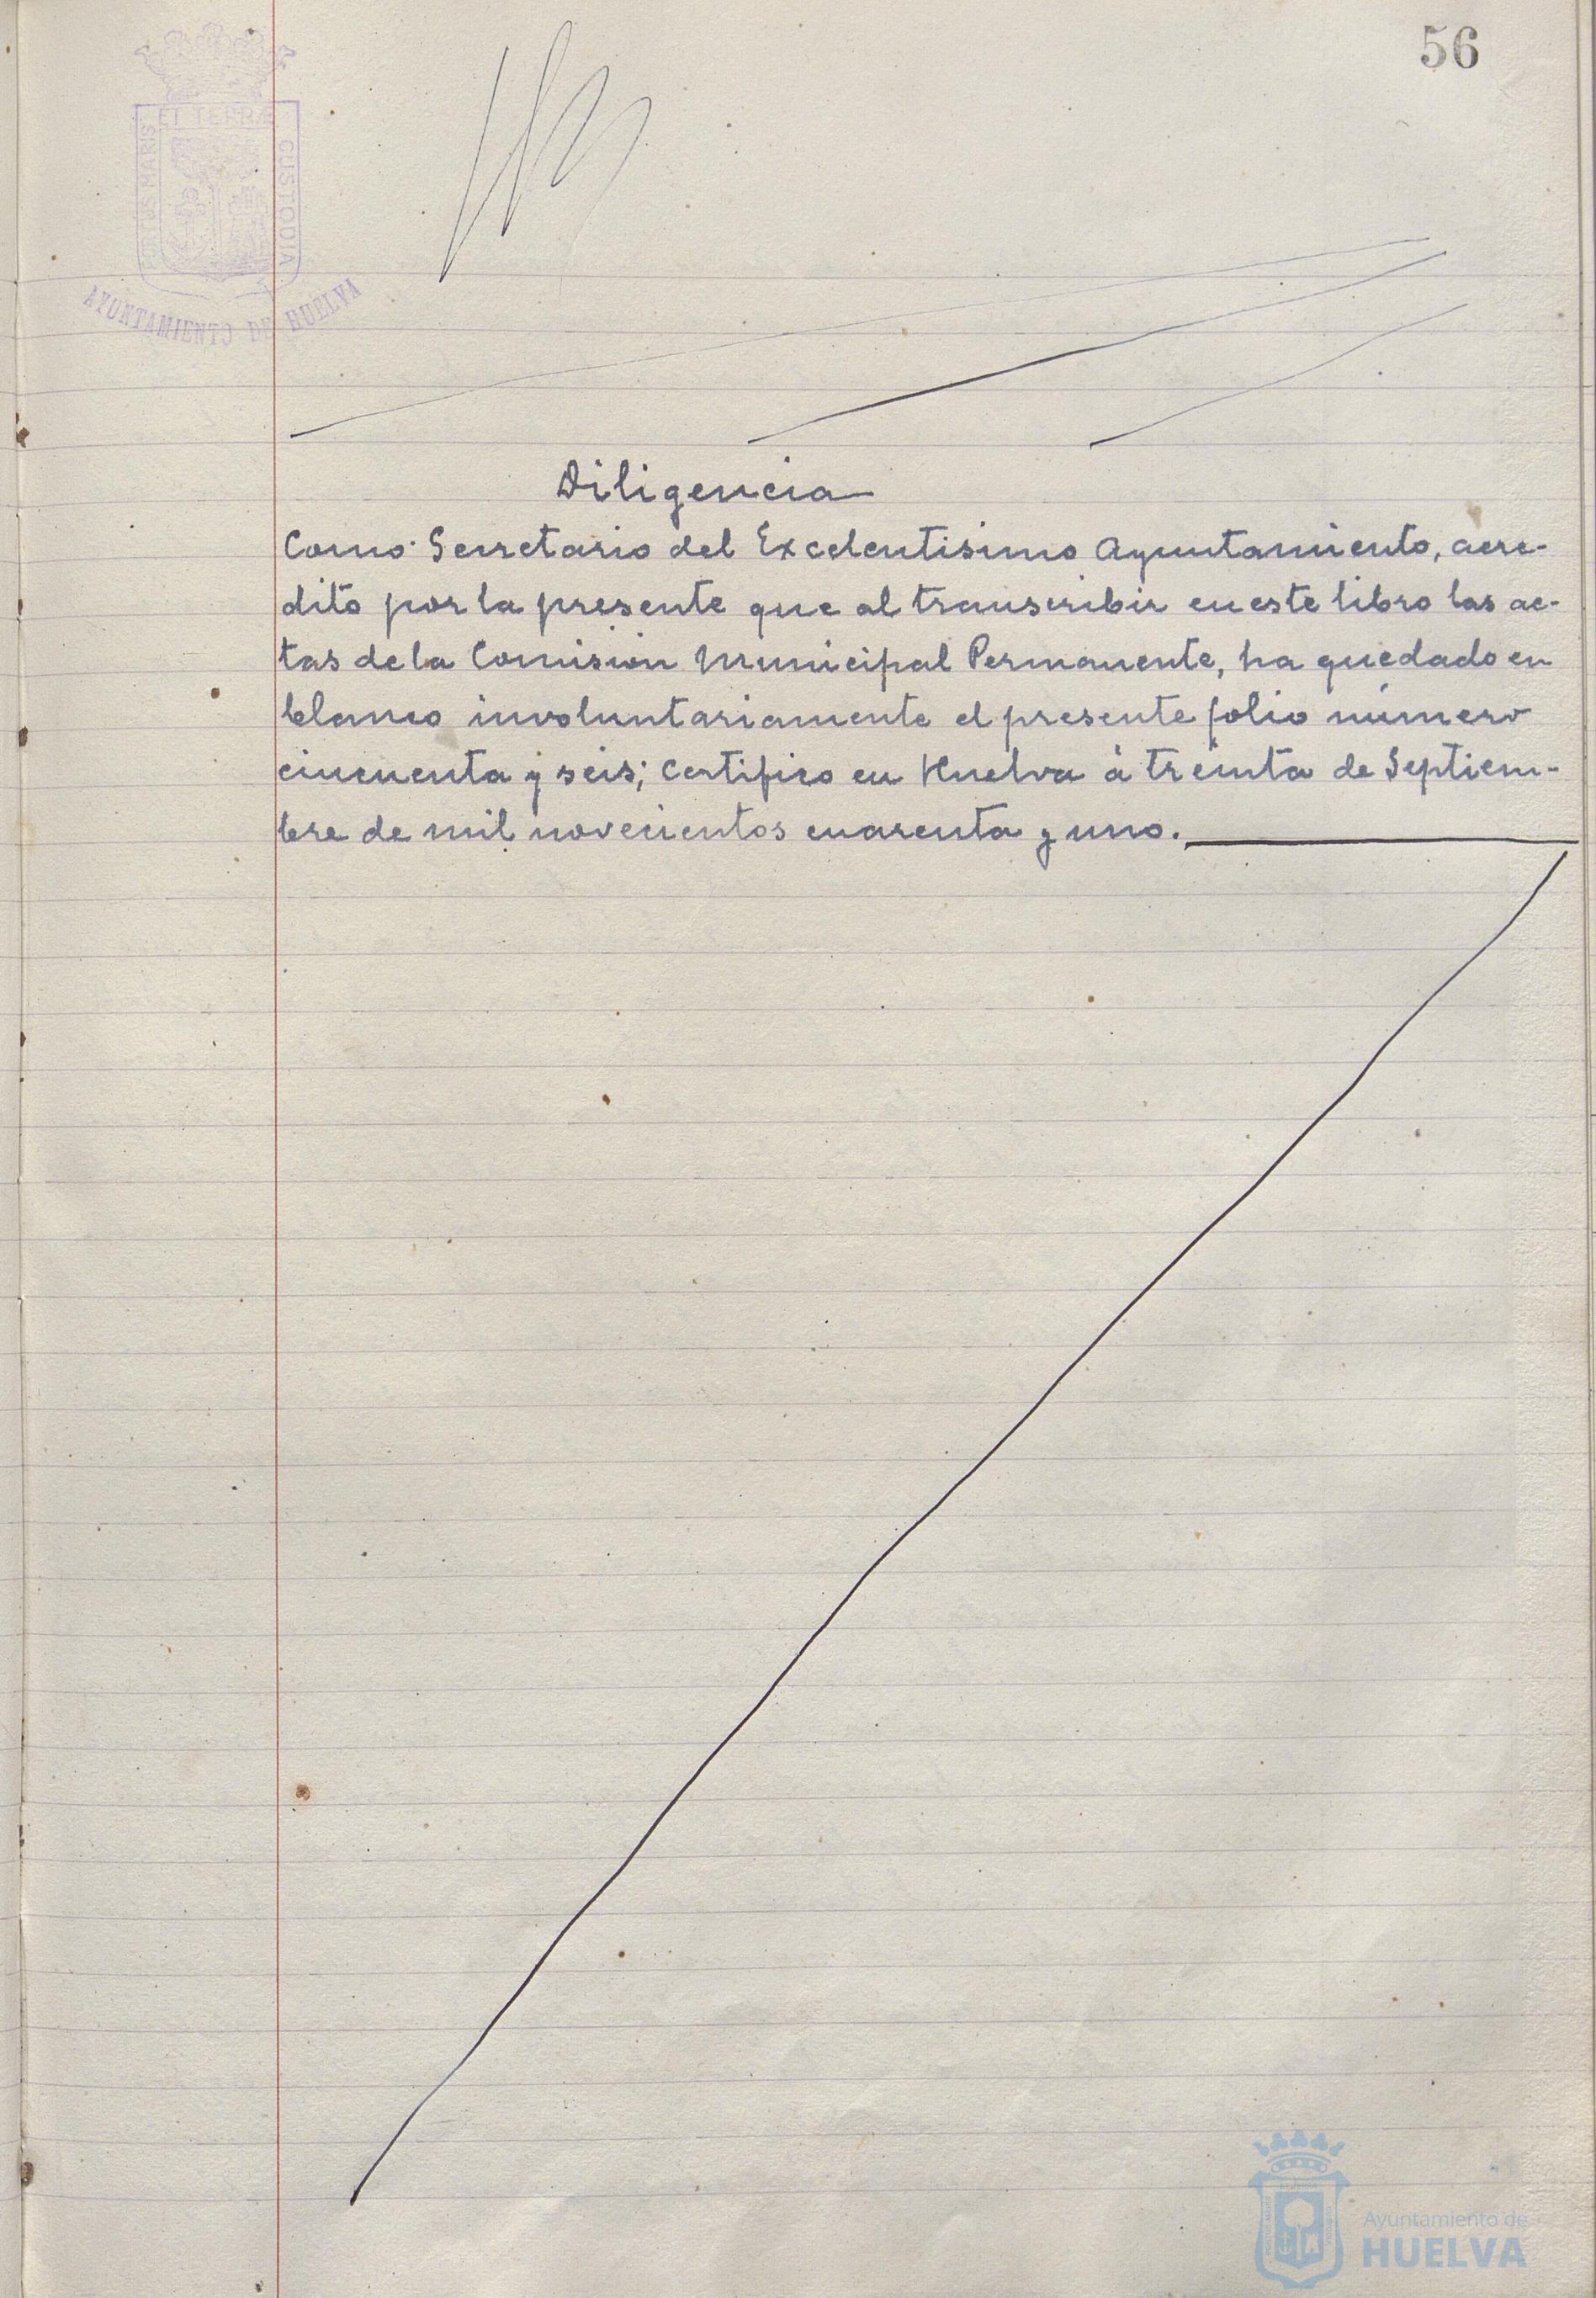 56
ET TERRÆ
MARIS
CUSTODIA
AYUNTAMIENTO DE HUELVA
Diligencia
Como Secretario del Excelentisimo Ayuntamiento, acre-
dito por la presente que al transcribir en este libro las ac-
tas de la Comisión Municipal Permanente, ha quedado en
blanco involuntariamente el presente folio número
cincuenta y seis; certifico en Huelva à treinta de Septiem-
bre de mil novecientos cuarenta y uno.
Ayuntamiento de
HUELVA